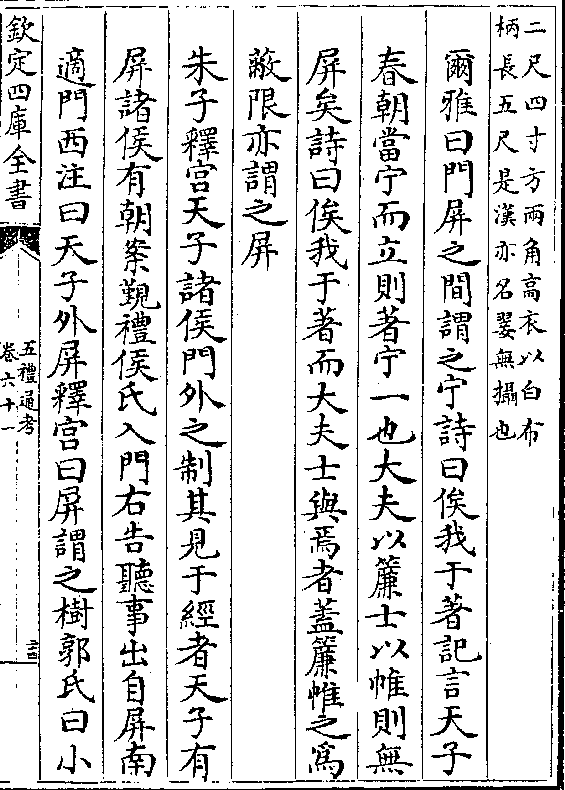 二尺四寸方兩角高衣以白布
柄長五尺是漢亦名翣無攝也
爾雅曰門屏之間謂之宁詩曰俟我于著記言天子
春朝當宁而立則著宁一也大夫以簾士以帷則無
屏矣詩曰俟我于著而大夫士與焉者蓋簾帷之為
蔽限亦謂之屏
朱子釋宫天子諸侯門外之制其見于經者天子有
屏諸侯有朝案覲禮侯氏入門右告聽事出自屏南
適門西注曰天子外屏釋宫曰屏謂之樹郭氏曰小
欽定四庫全書
五禮通考
卷六十一